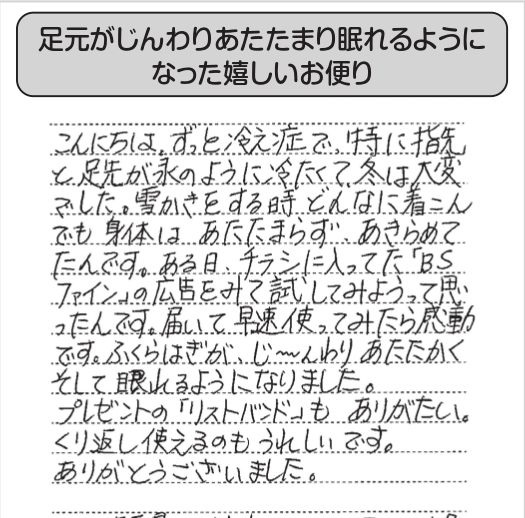 足元がじんわりあたたまり眠れるように
なった嬉しいお便り
こんにちは。ずっと冷え症で、特に指先
と足先が氷のように冷たくて、冬は大変
でした。雪かきをする時 どんなに着こん
でも 身体は あたたまらず、あきらめて
たんです。ある日、チラシに入ってた「BS
ファイン」の広告をみて試してみようって思
ったんです。届いて早速使ってみたら感動
です。ふくらはぎが、じ〜んわりあたたかく
そして眠れるようになりました。
プレゼントの「リストバンド」も ありがたい。
くり返し使えるのも うれしいです。
ありがとうございました。